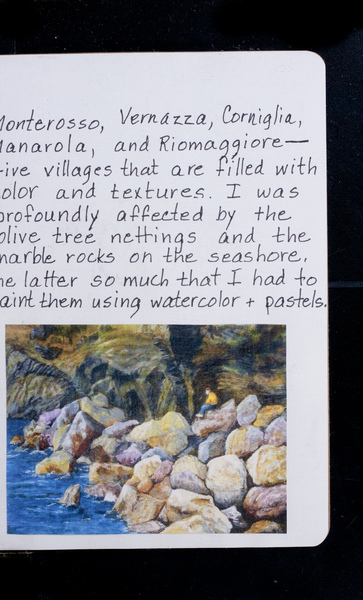 Monterosso, Vernazza, Corniglia,
Manarola, and Riomaggiore—
five villages that are filled with
color and textures. I was
profoundly affected by the
olive tree nettings and the
marble rocks on the seashore,
the latter so much that I had to
paint them using watercolor + pastels.